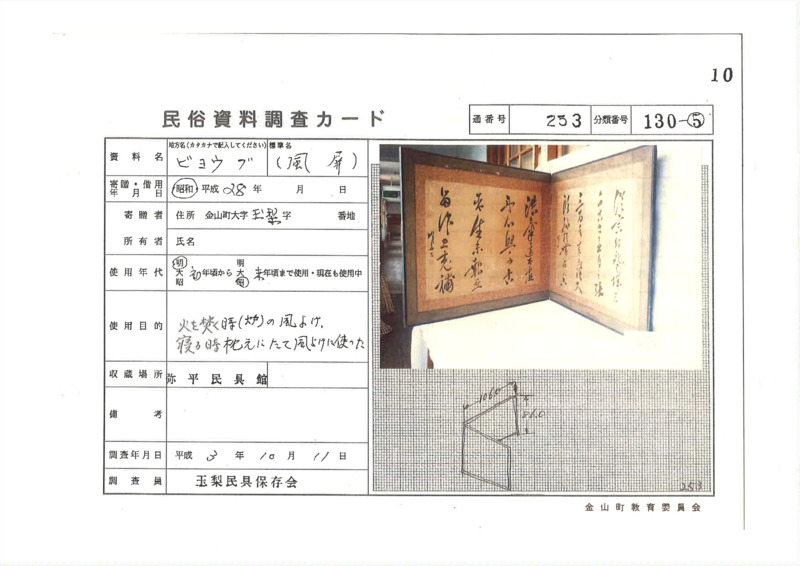 10
民俗資料調査カード
通番号 253 分類番号 130-⑤
資料名 地方名(カタカナで記入してください) ビョウブ 標準名 (風屏)
寄贈・借用年月日 昭和・平成 28年 月 日
寄贈者 住所 金山町大字 玉梨 字 番地
所有者 氏名
使用年代 明大昭 初年頃から 明大昭 末年頃まで使用・現在も使用中
使用目的 火を焚く時(炉)の風よけ、
寝る時枕元にたて風よけに使った
収蔵場所 弥平民具館
備考
調査年月日 平成 3年 10月 11日
調査員 玉梨民具保存会
106.0
86.0
253
金山町教育委員会